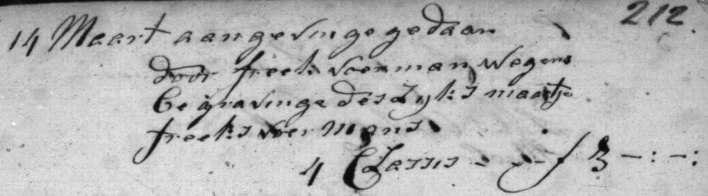 212
14 Maart aangevinge gedaan
door freek voerman wegens
begravinge des Lyks maartje
freeks voermans
4 Classis - - - f 3 -:-: